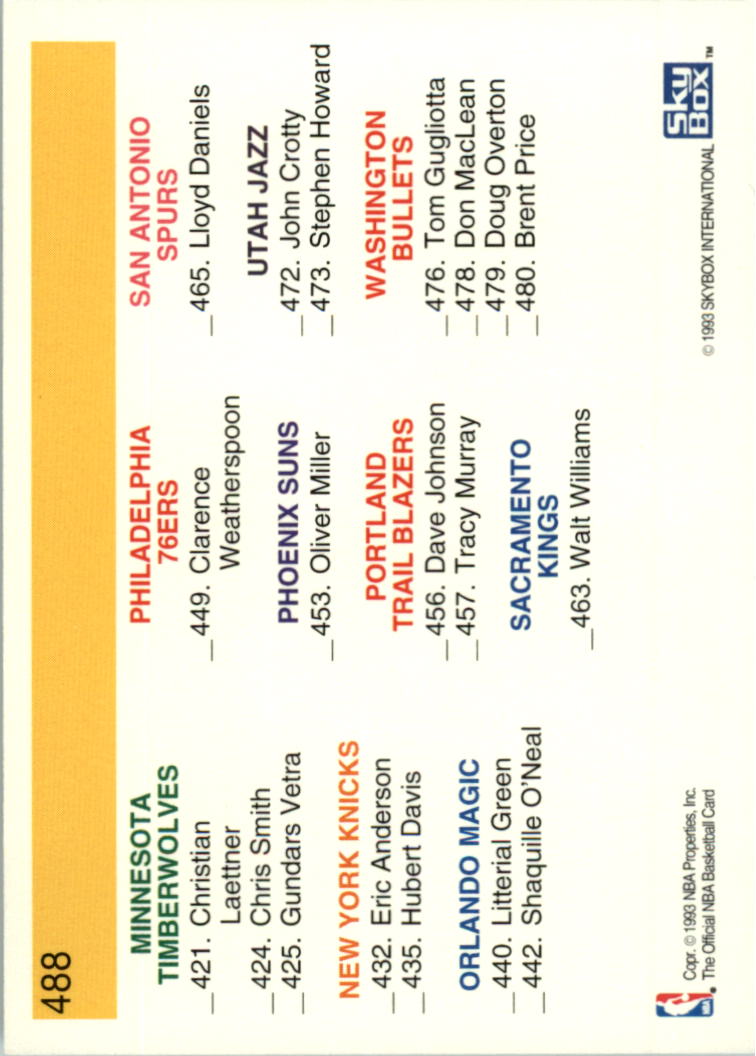 488
MINNESOTA
TIMBERWOLVES
_421. Christian
Laettner
_424. Chris Smith
_425. Gundars Vetra
NEW YORK KNICKS
_432. Eric Anderson
_435. Hubert Davis
ORLANDO MAGIC
_440. Litterial Green
_442. Shaquille O'Neal
PHILADELPHIA
76ERS
_449. Clarence
Weatherspoon
PHOENIX SUNS
_453. Oliver Miller
PORTLAND
TRAIL BLAZERS
_456. Dave Johnson
_457. Tracy Murray
SACRAMENTO
KINGS
_463. Walt Williams
SAN ANTONIO
SPURS
_465. Lloyd Daniels
UTAH JAZZ
_472. John Crotty
_473. Stephen Howard
WASHINGTON
BULLETS
_476. Tom Gugliotta
_478. Don MacLean
_479. Doug Overton
_480. Brent Price
NBA
Copr. © 1993 NBA Properties, Inc.
The Official NBA Basketball Card
© 1993 SKYBOX INTERNATIONAL
Sky
Box™